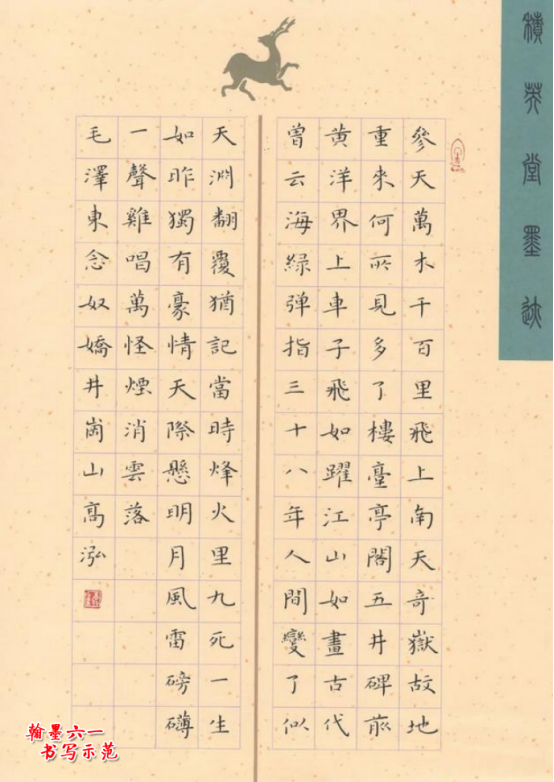 積英堂墨迹
參天萬木千百里飛上南天奇嶽故地
重來何所見多了樓臺亭閣五井碑前
黄洋界上車子飛如躍江山如畫古代
曾云海緑弹指三十八年人間變了似
天淵翻覆猶記當時烽火里九死一生
如昨獨有豪情天際懸明月風雷磅礴
一聲雞唱萬怪煙消雲落
毛澤東念奴嬌井崗山高泓
翰墨六一
书写示范